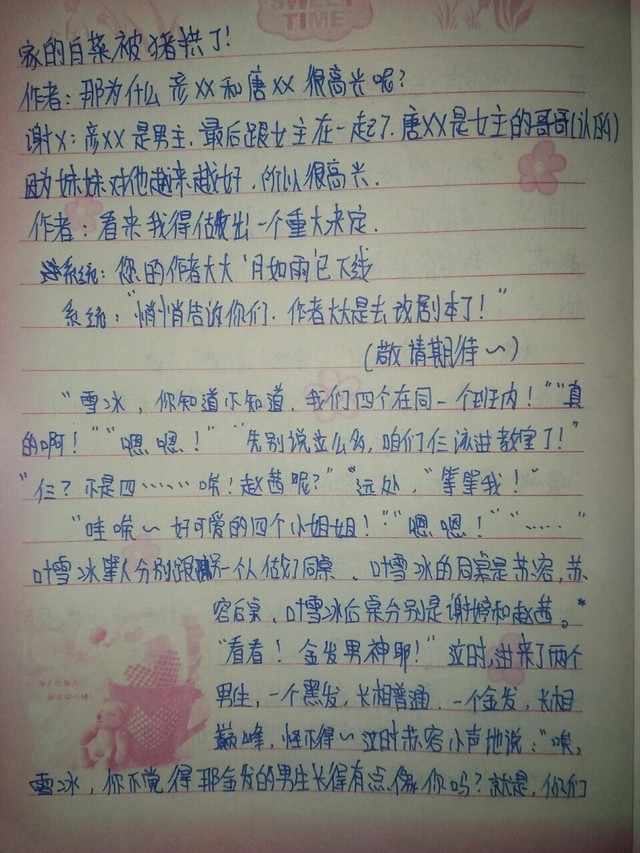 SWEET
TIME
家的白菜被猪拱了!
作者:那为什么彦XX和唐XX很高兴呢?
谢X:彦XX是男主.最后跟女主在一起了.唐XX是女主的哥哥(认的)
因为妹妹对他越来越好.所以很高兴.
作者:看来我得做出一个重大决定.
系统:您的作者大大'月如雨'已下线
系统:"悄悄告诉你们.作者大大是去改剧本了!"
(敬请期待~)
"雪冰,你知道不知道.我们四个在同一个班内!""真
的啊!""嗯嗯!""先别说这么多,咱们仨该进教室了!"
"仨?不是四……唉!赵茜呢?"远处,"等等我!"
"哇唉~好可爱的四个小姐姐!""嗯嗯!""……"
叶雪冰等人分别跟另一个人做了同桌、叶雪冰的同桌是苏容,苏
容后桌、叶雪冰后桌分别是谢婷和赵茜。"
"看看!金发男神耶!"这时,进来了两个
男生,一个黑发,长相普通、一个金发,长相
巅峰,怪不得~这时苏容小声地说:"唉,
雪冰,你不觉得那金发的男生长得有点像你吗?就是,你们